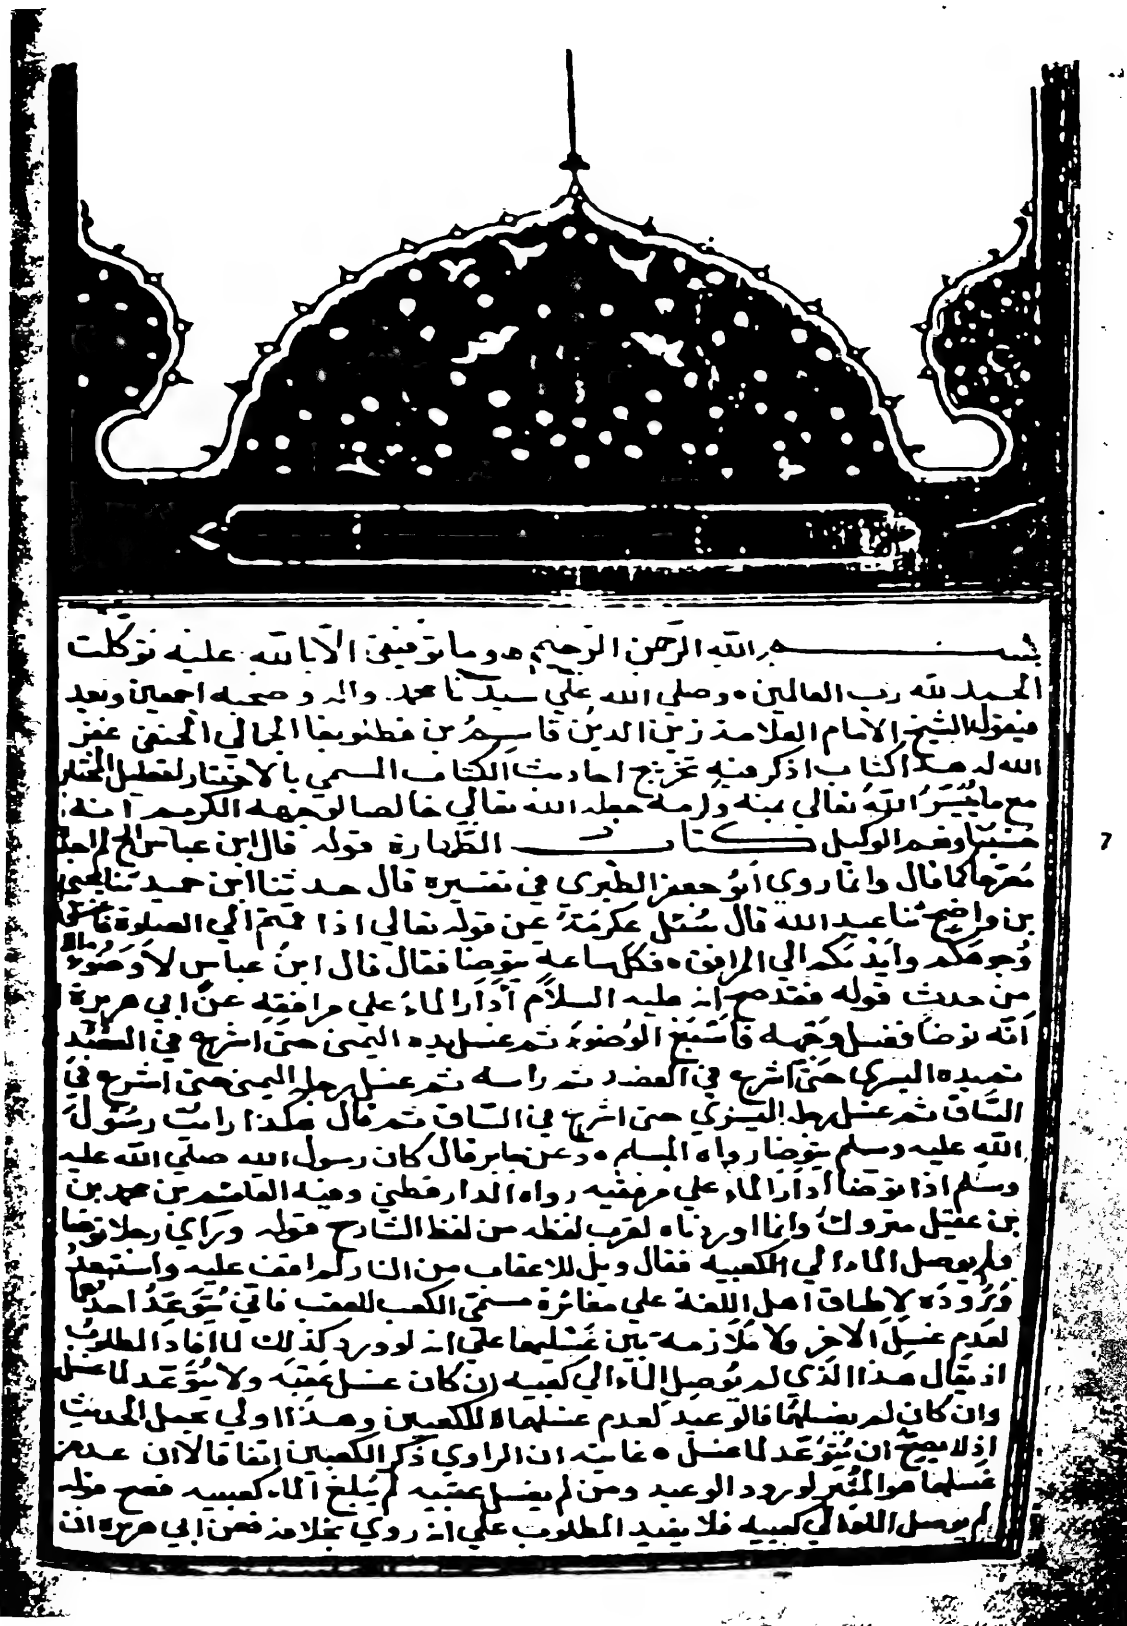 بسم الله الرحمن الرحيم ه وما توفيقي الا بالله عليه توكلت
الحمد لله رب العالمين ه وصلي الله علي سيدنا محمد واله وصحبه اجمعين وبعد
فيقول الشيخ الامام العلامة زين الدين قاسم بن قطلوبغا الجمالي الحنفي غفر
الله له هذا كتاب اذكر فيه تخريج احاديث الكتاب المسمي بالاختيار لتعليل المختار
مع ما ييسره الله تعالي بمنه وكرمه جعله الله تعالي خالصا لوجهه الكريم انه
حسبنا ونعم الوكيل كتاب الطهارة قوله قال ابن عباس الخ لم اجد
مخرجا كما قال وانما روي ابو جعفر الطبري في تفسيره قال حدثنا ابن حميد ثنا يحيي
بن واضح ثنا عبيد الله قال سئل عكرمة عن قوله تعالي اذا قمتم الي الصلوة فاغسلوا
وجوهكم وايديكم الي المرافق ه فكل ساعة يتوضا فقال قال ابن عباس لا وضوء الا
من حدث قوله فقد صح انه عليه السلام ادار الماء علي مرافقه عن ابي هريرة
انه توضا فغسل وجهه فاسبغ الوضوء ثم غسل يده اليمني حتي اشرع في العضد
ثم يده اليسري حتي اشرع في العضد ثم راسه ثم غسل رجله اليمني حتي اشرع في
الساق ثم غسل رجله اليسري حتي اشرع في الساق ثم قال هكذا رايت رسول
الله عليه وسلم يتوضا رواه المسلم ه وعن جابر قال كان رسول الله صلي الله عليه
وسلم اذا توضا ادار الماء علي مرفقيه رواه الدارقطني وفيه القاسم بن محمد بن
بن عقيل متروك وانما اوردناه لقرب لفظه من لفظ الشارح قوله وراي رجلا توضا
ولم يوصل الماء الي الكعبيه فقال ويل للاعقاب من النار لم اقف عليه واستبعد
وروده لاطباق اهل اللغة علي مغائرة مسمي الكعب للعقب فاني يتوعد احدهما
لعدم غسل الاخر ولا ملازمة بين غسليهما علي انه لو ورد كذلك لما افاد المطلوب
اذ يقال هذا الذي لم يوصل الماء الي كعبيه ان كان غسل عقبه ولا يتوعد لما غسل
وان كان لم يغسلهما فالوعيد لعدم غسلهما لا للكعبين وهذا اولي بحمل الحديث
اذ لا يصح ان يتوعد لما غسل ه غايته ان الراوي ذكر الكعبين اتفاقا لان عدم
غسلهما هو المثير لورود الوعيد ومن لم يغسل عقبيه لم يبلغ الماء كعبيه فصح قوله
لم يوصل الماء الي كعبيه فلا يفيد المطلوب علي انه روي بخلافه فعن ابي هريرة ان
7